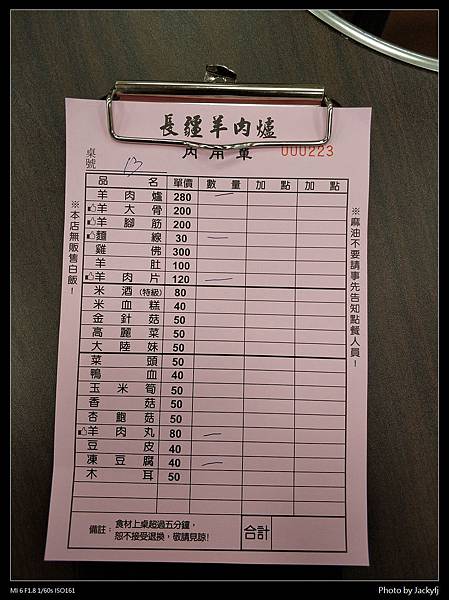 長疆羊肉爐
內用單 000223
桌號 13
品名 單價 數量 加點 加點
羊肉爐 280 一
羊大骨 200
羊腳筋 200
麵線 30 一
雞佛 300
羊肚 100
羊肉片 160 一
米酒(特級) 80
米血糕 40
金針菇 50
高麗菜 50
大陸妹 50
菜頭 50
鴨血 40
玉米筍 50
香菇 50
杏鮑菇 50
羊肉丸 80 一
豆皮 40
凍豆腐 40 一
木耳 50
備註：食材上桌超過五分鐘，
恕不接受退換，敬請見諒！
合計
※本店無販售白飯！
※麻油不要請事先告知點餐人員！
MI 6 F1.8 1/60s ISO161
Photo by Jackyfj